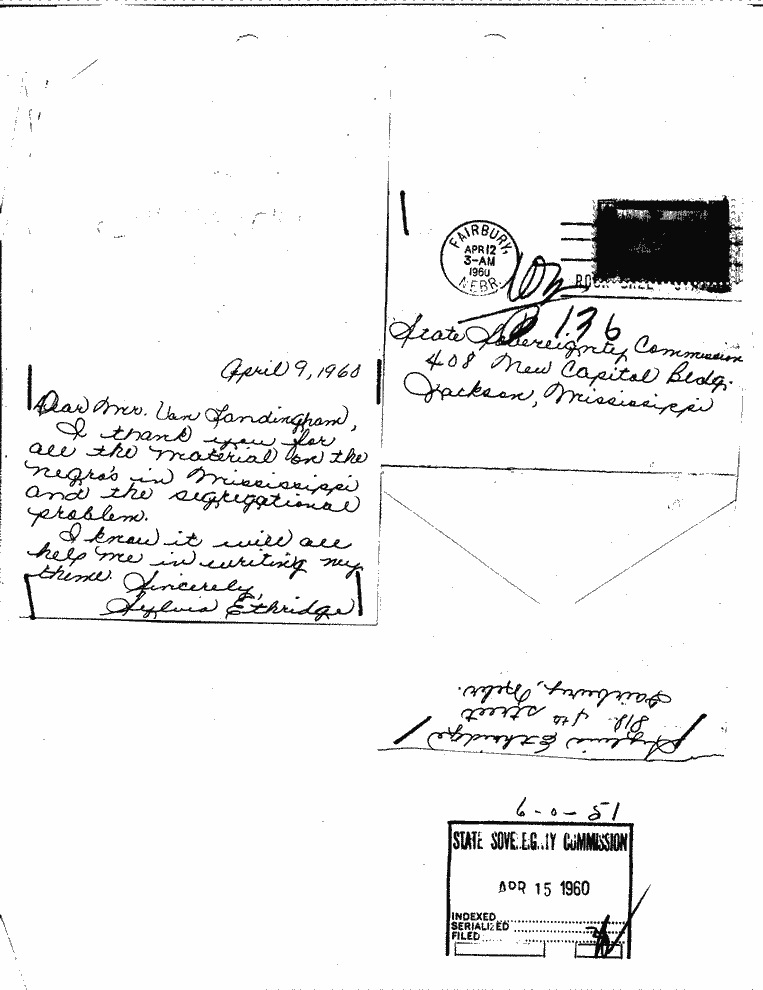 April 9, 1960
Dear Mr. Van Landingham,
I thank you for
all the material on the
negro's in Mississippi
and the segregational
problem.
I know it will all
help me in writing my
theme. Sincerely,
Sylvia Ethridge
FAIRBURY,
APR 12
3-AM
1960
NEBR.
136
State Sovereignty Commission
408 New Capitol Bldg.
Jackson, Mississippi
Sylvia Ethridge
818 4th street
Fairbury, Nebr.
6-0-51
STATE SOVE.E.G..TY COMMISSION
APR 15 1960
INDEXED
SERIALIZED
FILED